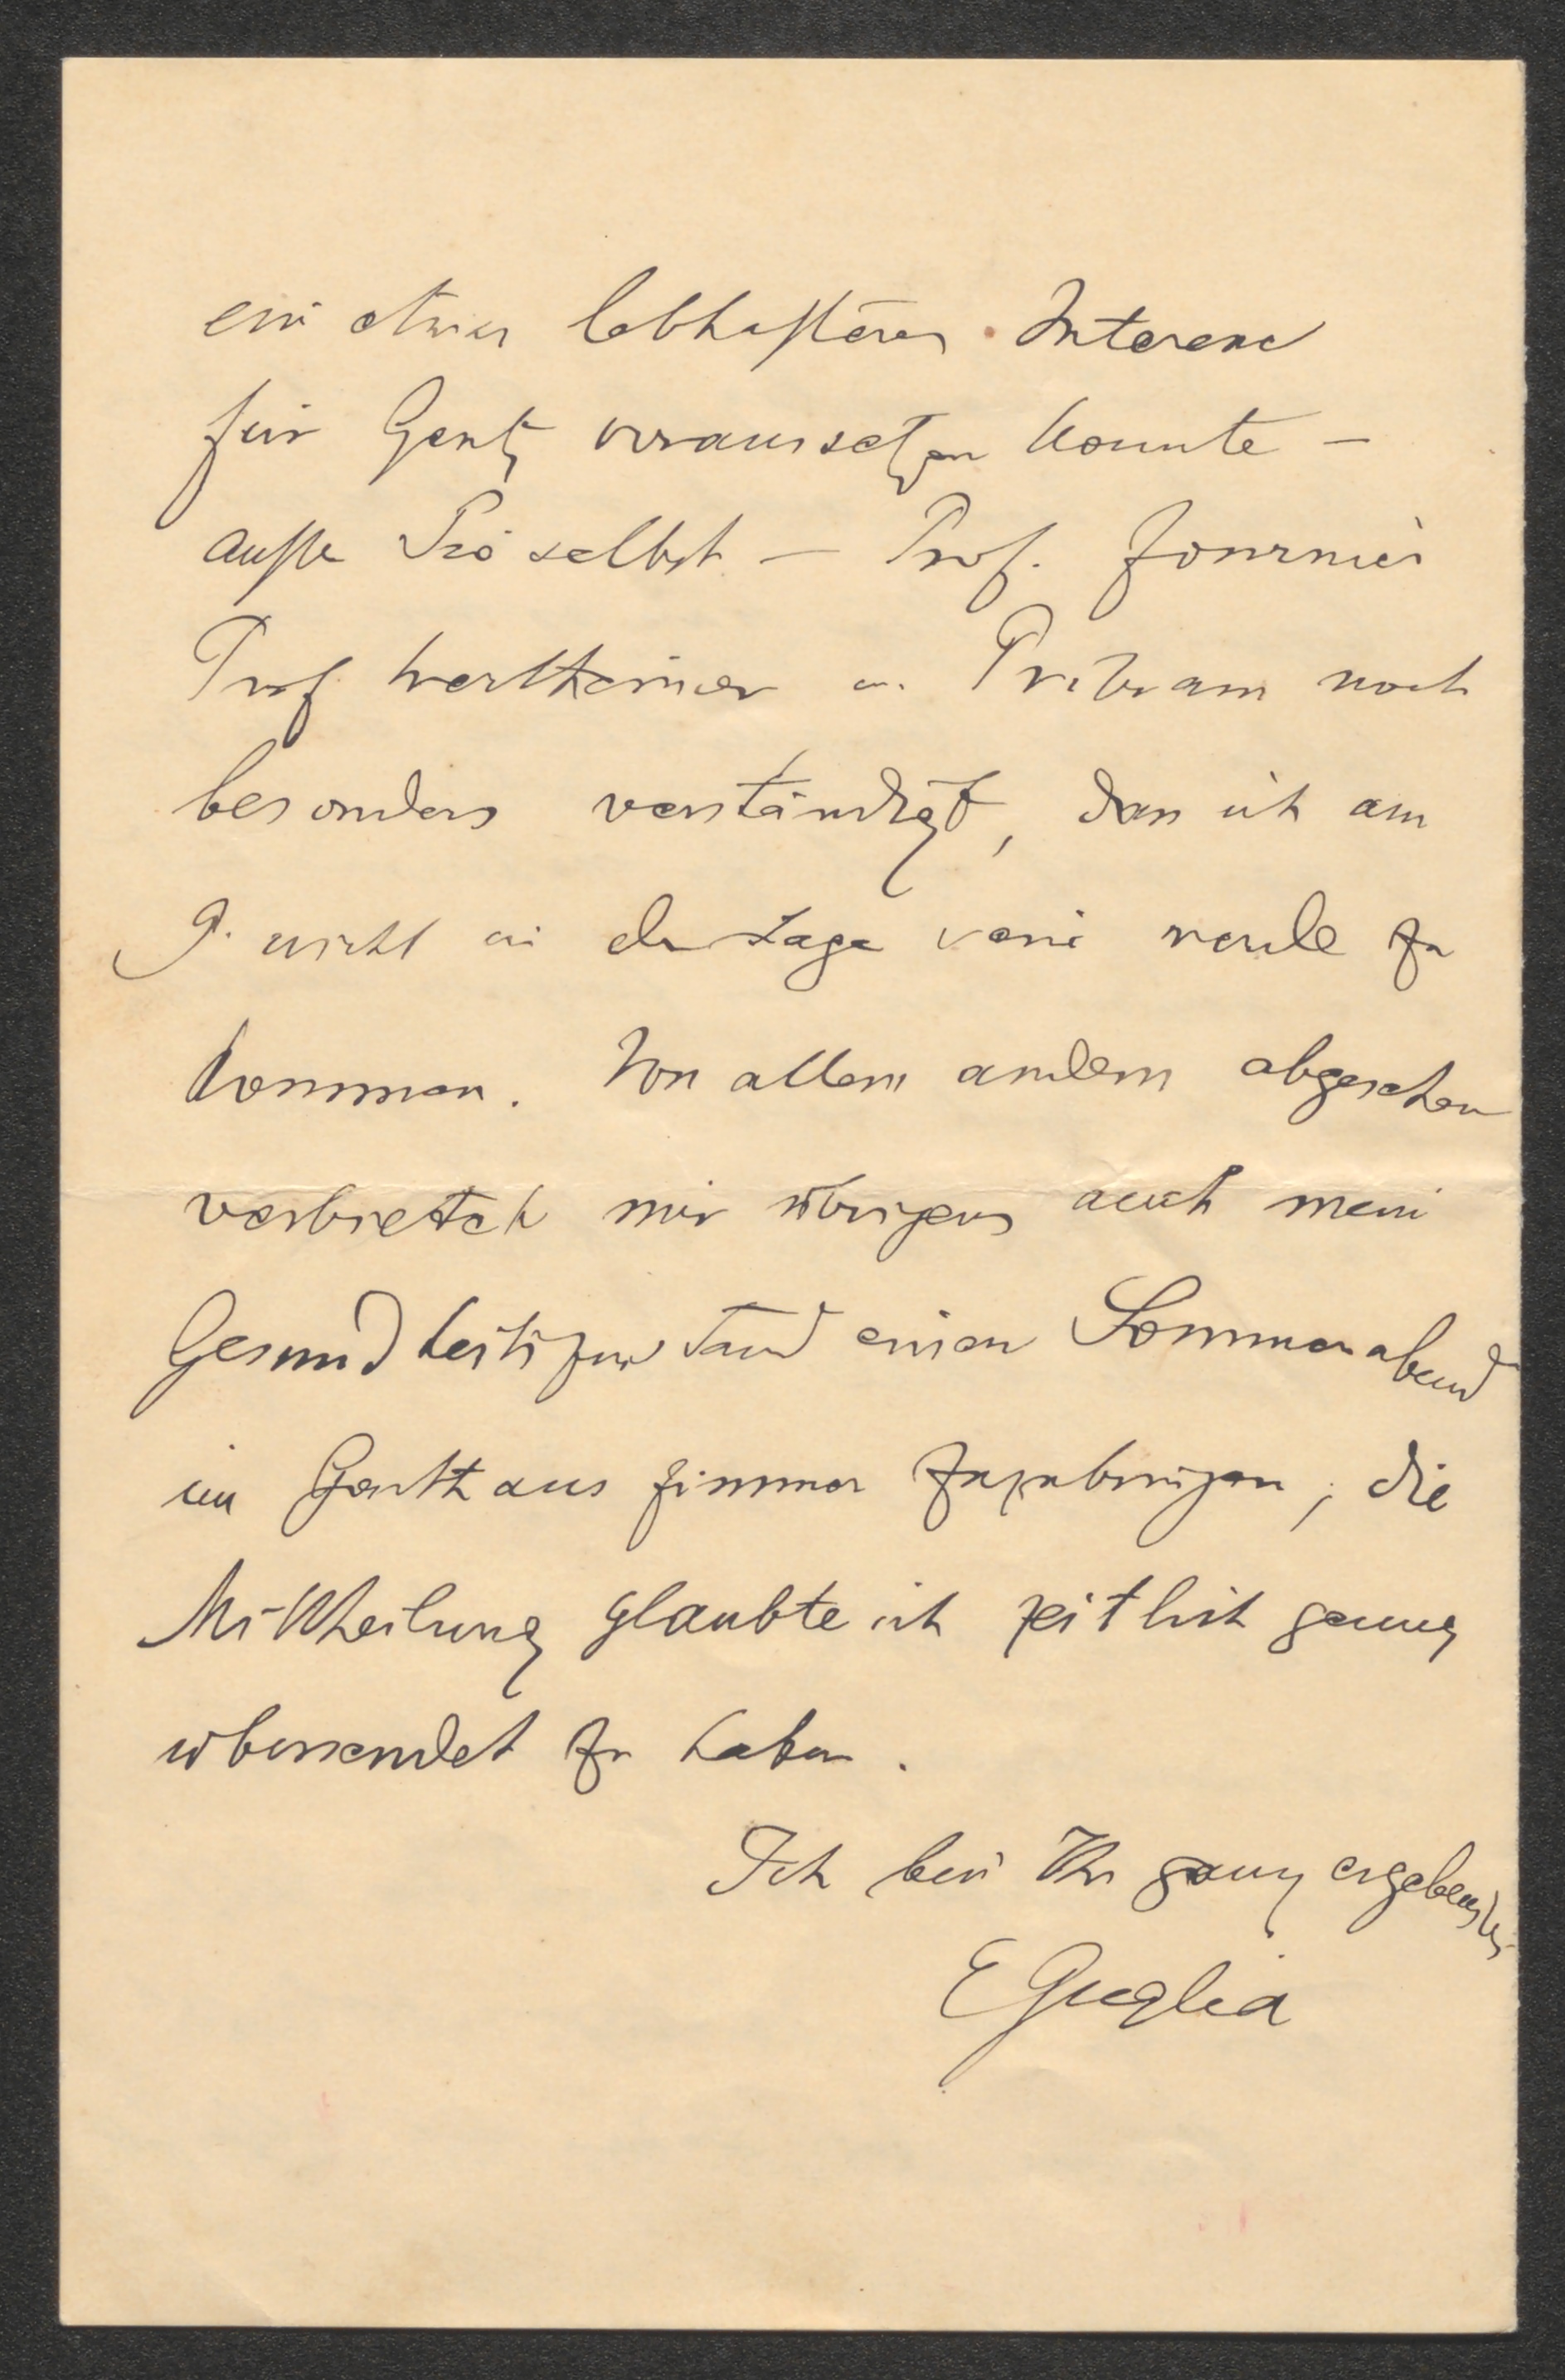 ein etwas lebhafteres Interesse
für Gentz voraussetzen konnte –
außer Sie selbst – Prof. Fournier
Prof. Wertheimer u. Pribram noch
besonders verständigt, dass ich am
9. nicht in der Lage sein werde zu
kommen. Von allem andern abgesehen
verbietet mir übrigens auch mein
Gesundheitszustand einen Sommerabend
im Gasthauszimmer zuzubringen; die
Mittheilung glaubte ich zeitlich genug
übersendet zu haben.
Ich bin Ihr ganz ergebenster
E Guglia